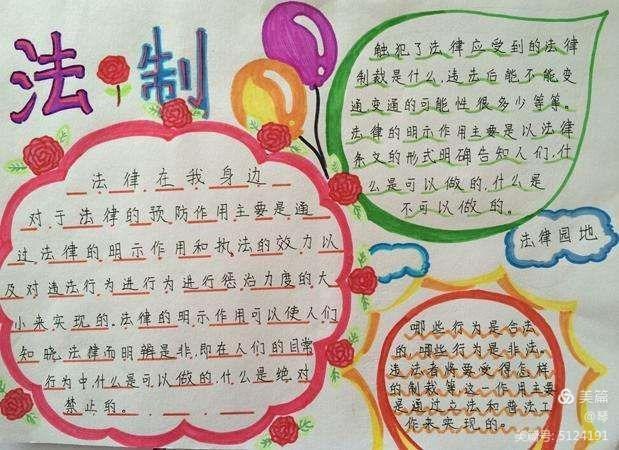 法制
法律在我身边
对于法律的预防作用主要是通
过法律的明示作用和执法的效力以
及对违法行为进行为进行惩治力度的大
小来实现的,法律的明示作用可以使人们
知晓法律而明辨是非,即在人们的日常
行为中,什么是可以做的,什么是绝对
禁止的。
触犯了法律应受到的法律
制裁是什么,违法后能不能变
通变通的可能性很多少等等。
法律的明示作用主要是以法律
条文的形式明确告知人们,什
么是可以做的,什么是
不可以做的。
法律园地
哪些行为是合法
的,哪些行为是非法。
违法者将要受得怎样
的制裁等,这一作用主要
是通过立法和普法工
作来实现的。
美篇
@琴
美篇号: 5124191